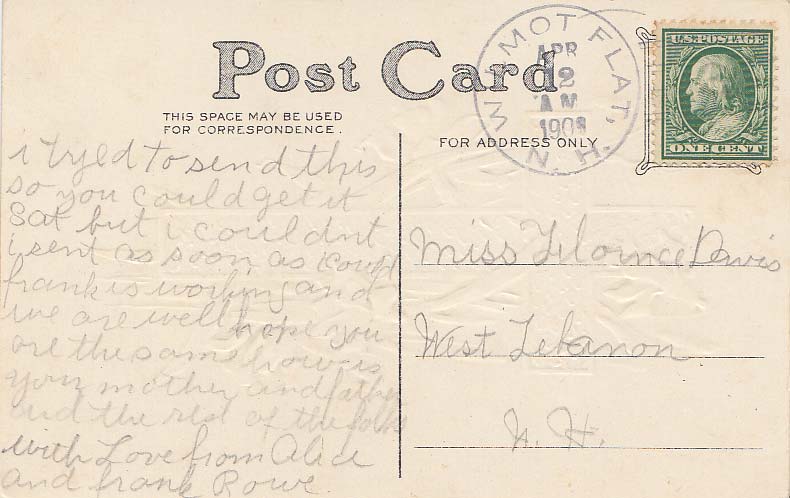 Post Card
THIS SPACE MAY BE USED
FOR CORRESPONDENCE.
FOR ADDRESS ONLY
WILMOT FLAT,
APR
2
AM
1909
N. H.
U.S. POSTAGE
ONE CENT
i tryed to send this
so you could get it
Sat but i couldnt
i sent as soon as i could
frank is working and
we are well hope you
are the same how is
your mother and father
and the rest of the folks
with Love from Alice
and frank Rowe
Miss Florince Davis
West Lebanon
N. H.